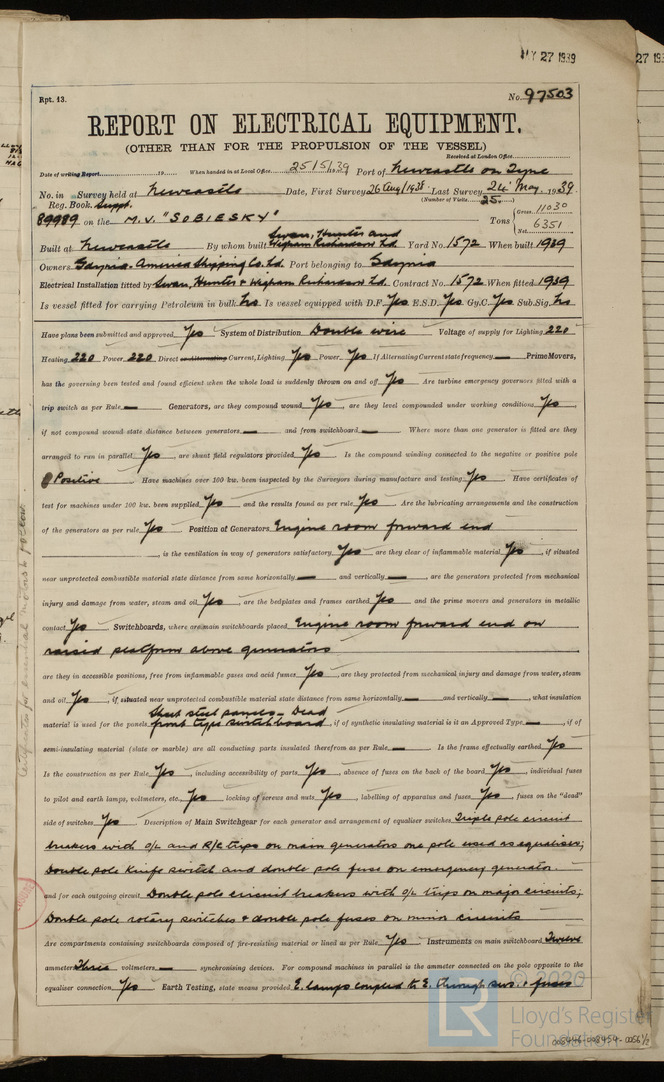 MAY 27 1939
Rpt. 13.
No. 97503
REPORT ON ELECTRICAL EQUIPMENT.
(OTHER THAN FOR THE PROPULSION OF THE VESSEL)
Received at London Office
Date of writing Report 19 When handed in at Local Office 25/5/39 Port of Newcastle on Tyne
No. in Survey held at Newcastle Date, First Survey 26 Aug/1938 Last Survey 24 May, 1939
Reg. Book. Suppt. (Number of Visits 25.
89989 on the M.V. "SOBIESKY" Tons { Gross 11030 Net 6351
Built at Newcastle By whom built Swan, Hunter and Wigham Richardson Ld. Yard No. 1572 When built 1939
Owners Gdynia-America Shipping Co. Ld. Port belonging to Gdynia
Electrical Installation fitted by Swan, Hunter & Wigham Richardson Ld. Contract No. 1572 When fitted 1939
Is vessel fitted for carrying Petroleum in bulk No. Is vessel equipped with D.F. Yes E.S.D. Yes Gy.C. Yes Sub.Sig. No
Have plans been submitted and approved Yes System of Distribution Double wire Voltage of supply for Lighting 220
Heating 220 Power 220 Direct or Alternating Current, Lighting Yes Power Yes If Alternating Current state frequency — Prime Movers,
has the governing been tested and found efficient when the whole load is suddenly thrown on and off Yes Are turbine emergency governors fitted with a
trip switch as per Rule — Generators, are they compound wound Yes, are they level compounded under working conditions Yes,
if not compound wound state distance between generators — and from switchboard — Where more than one generator is fitted are they
arranged to run in parallel Yes, are shunt field regulators provided Yes Is the compound winding connected to the negative or positive pole
Positive Have machines over 100 kw. been inspected by the Surveyors during manufacture and testing Yes Have certificates of
test for machines under 100 kw. been supplied Yes and the results found as per rule Yes Are the lubricating arrangements and the construction
of the generators as per rule Yes Position of Generators Engine room forward end
, is the ventilation in way of generators satisfactory Yes are they clear of inflammable material Yes, if situated
near unprotected combustible material state distance from same horizontally — and vertically —, are the generators protected from mechanical
injury and damage from water, steam and oil Yes, are the bedplates and frames earthed Yes and the prime movers and generators in metallic
contact Yes Switchboards, where are main switchboards placed Engine room forward end on
raised platform above generators
are they in accessible positions, free from inflammable gases and acid fumes Yes, are they protected from mechanical injury and damage from water, steam
and oil Yes, if situated near unprotected combustible material state distance from same horizontally — and vertically —, what insulation
material is used for the panels Sheet steel panels – Dead front type switchboard, if of synthetic insulating material is it an Approved Type —, if of
semi-insulating material (slate or marble) are all conducting parts insulated therefrom as per Rule — Is the frame effectually earthed Yes
Is the construction as per Rule Yes, including accessibility of parts Yes, absence of fuses on the back of the board Yes, individual fuses
to pilot and earth lamps, voltmeters, etc. Yes locking of screws and nuts Yes, labelling of apparatus and fuses Yes, fuses on the "dead"
side of switches Yes Description of Main Switchgear for each generator and arrangement of equaliser switches Triple pole circuit
breakers with O/L and R/C trips on main generators one pole used as equaliser;
Double pole knife switch and double pole fuse on emergency generator.
and for each outgoing circuit Double pole circuit breakers with O/L trips on major circuits;
Double pole rotary switches & double pole fuses on minor circuits
Are compartments containing switchboards composed of fire-resisting material or lined as per Rule Yes Instruments on main switchboard Twelve
ammeters Three voltmeters — synchronising devices. For compound machines in parallel is the ammeter connected on the pole opposite to the
equaliser connection Yes Earth Testing, state means provided E. lamps coupled to E. through sws. & fuses
© 2020
LR
Lloyd's Register
Foundation